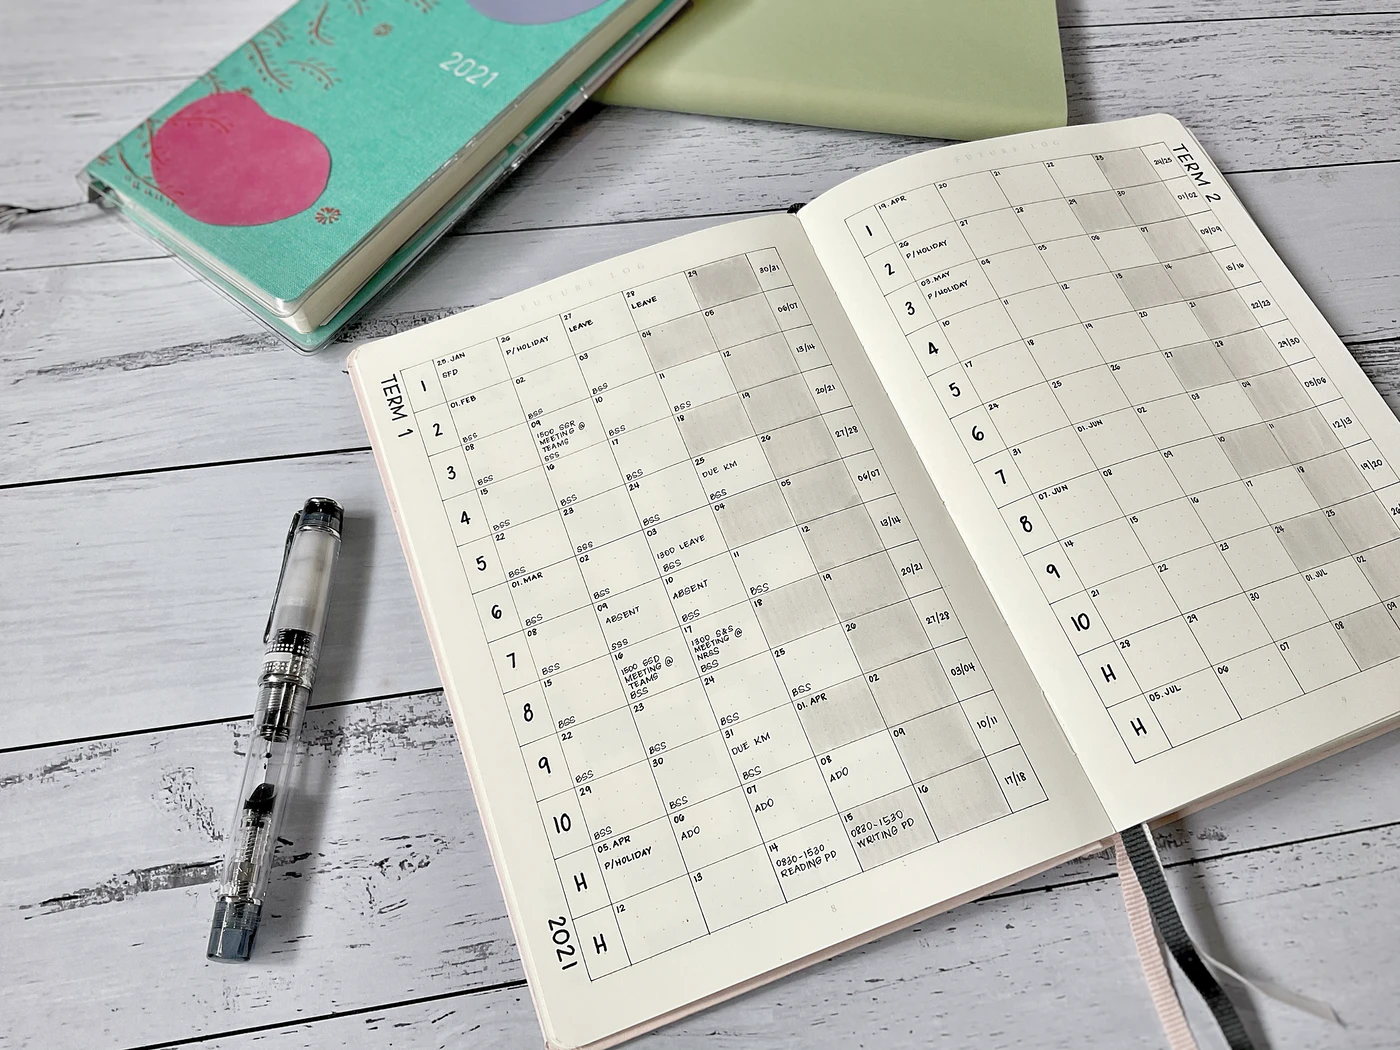 2021
FUTURE LOG
TERM 1
1
25. JAN
SFD
26
P/HOLIDAY
27
LEAVE
28
LEAVE
29
30/31
2
01.FEB
BSS
02
BSS
03
BSS
04
05
06/07
3
08
BSS
09
1500 SSR
MEETING @
TEAMS
SSS
10
11
BSS
12
13/14
4
15
BSS
16
BSS
17
BSS
18
19
20/21
5
22
BSS
23
SSS
24
BSS
25
DUE KM
BSS
26
27/28
6
01. MAR
BSS
02
BSS
03
1300 LEAVE
BSS
04
05
06/07
7
08
BSS
09
ABSENT
SSS
10
ABSENT
BSS
11
BSS
12
13/14
8
15
BSS
16
1500 SSD
MEETING @
TEAMS
BSS
17
1300 S&S
MEETING @
NRSS
BSS
18
19
20/21
9
22
BSS
23
BSS
24
BSS
25
BSS
26
27/28
10
29
BSS
30
BSS
31
DUE KM
BSS
01. APR
02
03/04
H
05. APR
P/HOLIDAY
06
ADO
07
ADO
08
ADO
09
10/11
H
12
13
14
0830-1530
READING PD
15
0830-1530
WRITING PD
16
17/18
2021
8
FUTURE LOG
TERM 2
1
19. APR
20
21
22
23
24/25
2
26
P/HOLIDAY
27
28
29
30
01/02
3
03. MAY
P/HOLIDAY
04
05
06
07
08/09
4
10
11
12
13
14
15/16
5
17
18
19
20
21
22/23
6
24
25
26
27
28
29/30
7
31
01. JUN
02
03
04
05/06
8
07. JUN
08
09
10
11
12/13
9
14
15
16
17
18
19/20
10
21
22
23
24
25
26
H
28
29
30
01. JUL
02
H
05. JUL
06
07
08
09